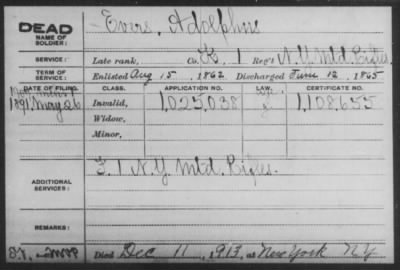 DEAD
NAME OF SOLDIER:
Evers, Adolphus
SERVICE:
Late rank, Co. K, 1 Reg't N.Y. Mtd. Rifles.
TERM OF SERVICE:
Enlisted Aug 15, 1862 Discharged June 12, 1865
DATE OF FILING. CLASS. APPLICATION NO. LAW. CERTIFICATE NO.
1891, May 26 Invalid, 1,025,038 1,108,655
Widow,
Minor,
ADDITIONAL SERVICES:
F. 1 N.Y. Mtd. Rifles.
REMARKS:
Died Dec 11, 1913, at New York N.Y.